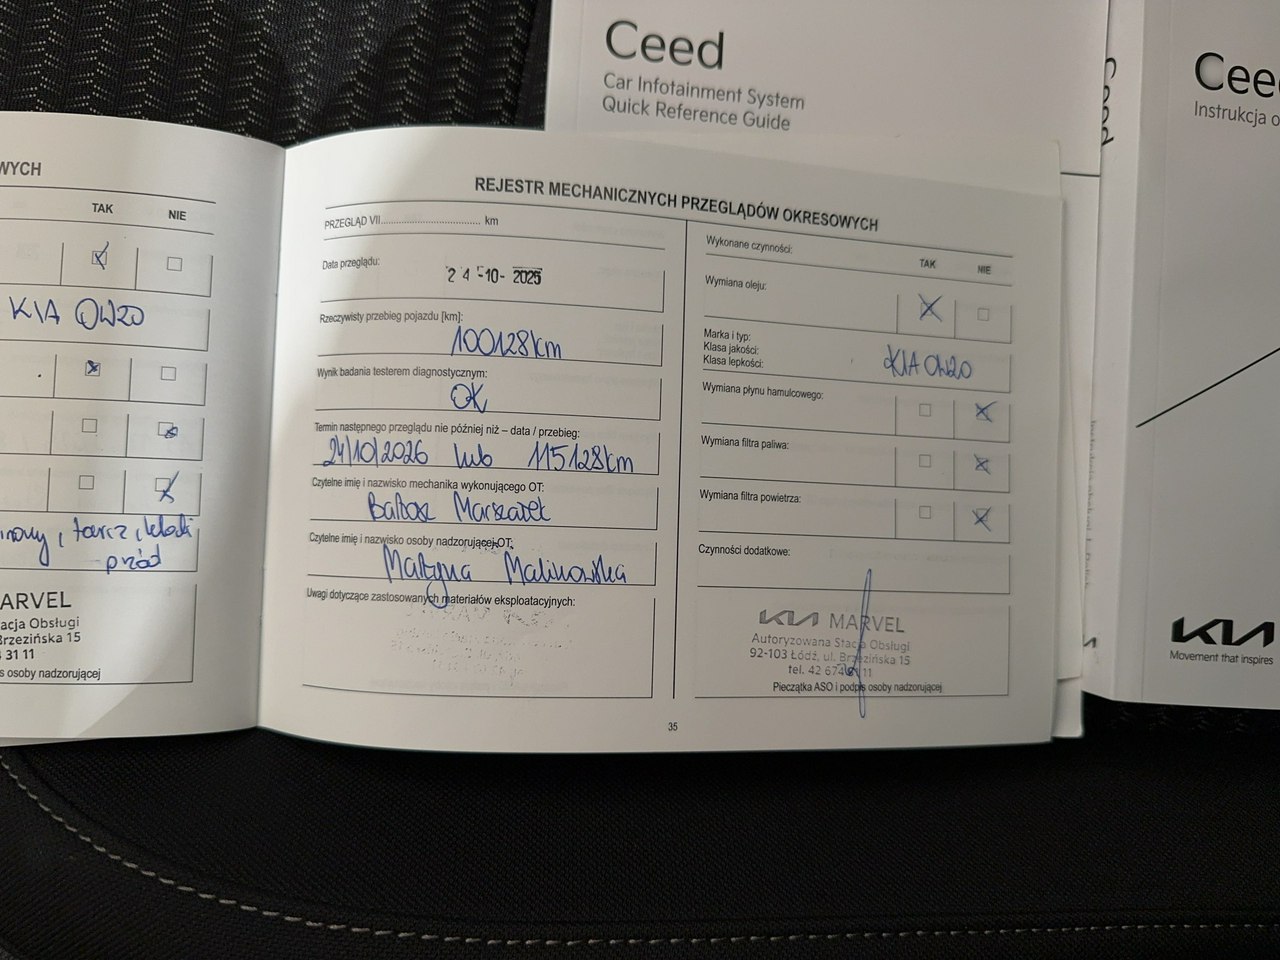 Ceed
Car Infotainment System
Quick Reference Guide
Ceed
Cee
Instrukcja o
KIA
Movement that inspires
WYCH
TAK NIE
KIA 0W20
tarcz, klocki
przód
ARVEL
acja Obsługi
Brzezińska 15
31 11
s osoby nadzorującej
REJESTR MECHANICZNYCH PRZEGLĄDÓW OKRESOWYCH
PRZEGLĄD VII.................................... km
Data przeglądu:
24-10-2025
Rzeczywisty przebieg pojazdu [km]:
100128km
Wynik badania testerem diagnostycznym:
OK
Termin następnego przeglądu nie później niż – data / przebieg:
24/10/2026 lub 115128km
Czytelne imię i nazwisko mechanika wykonującego OT:
Bartosz Marszałek
Czytelne imię i nazwisko osoby nadzorującej OT:
Martyna Malinowska
Uwagi dotyczące zastosowanych materiałów eksploatacyjnych:
Wykonane czynności:
TAK NIE
Wymiana oleju:
Marka i typ:
Klasa jakości:
Klasa lepkości:
KIA 0W20
Wymiana płynu hamulcowego:
Wymiana filtra paliwa:
Wymiana filtra powietrza:
Czynności dodatkowe:
KIA MARVEL
Autoryzowana Stacja Obsługi
92-103 Łódź, ul. Brzezińska 15
tel. 42 674 31 11
Pieczątka ASO i podpis osoby nadzorującej
35